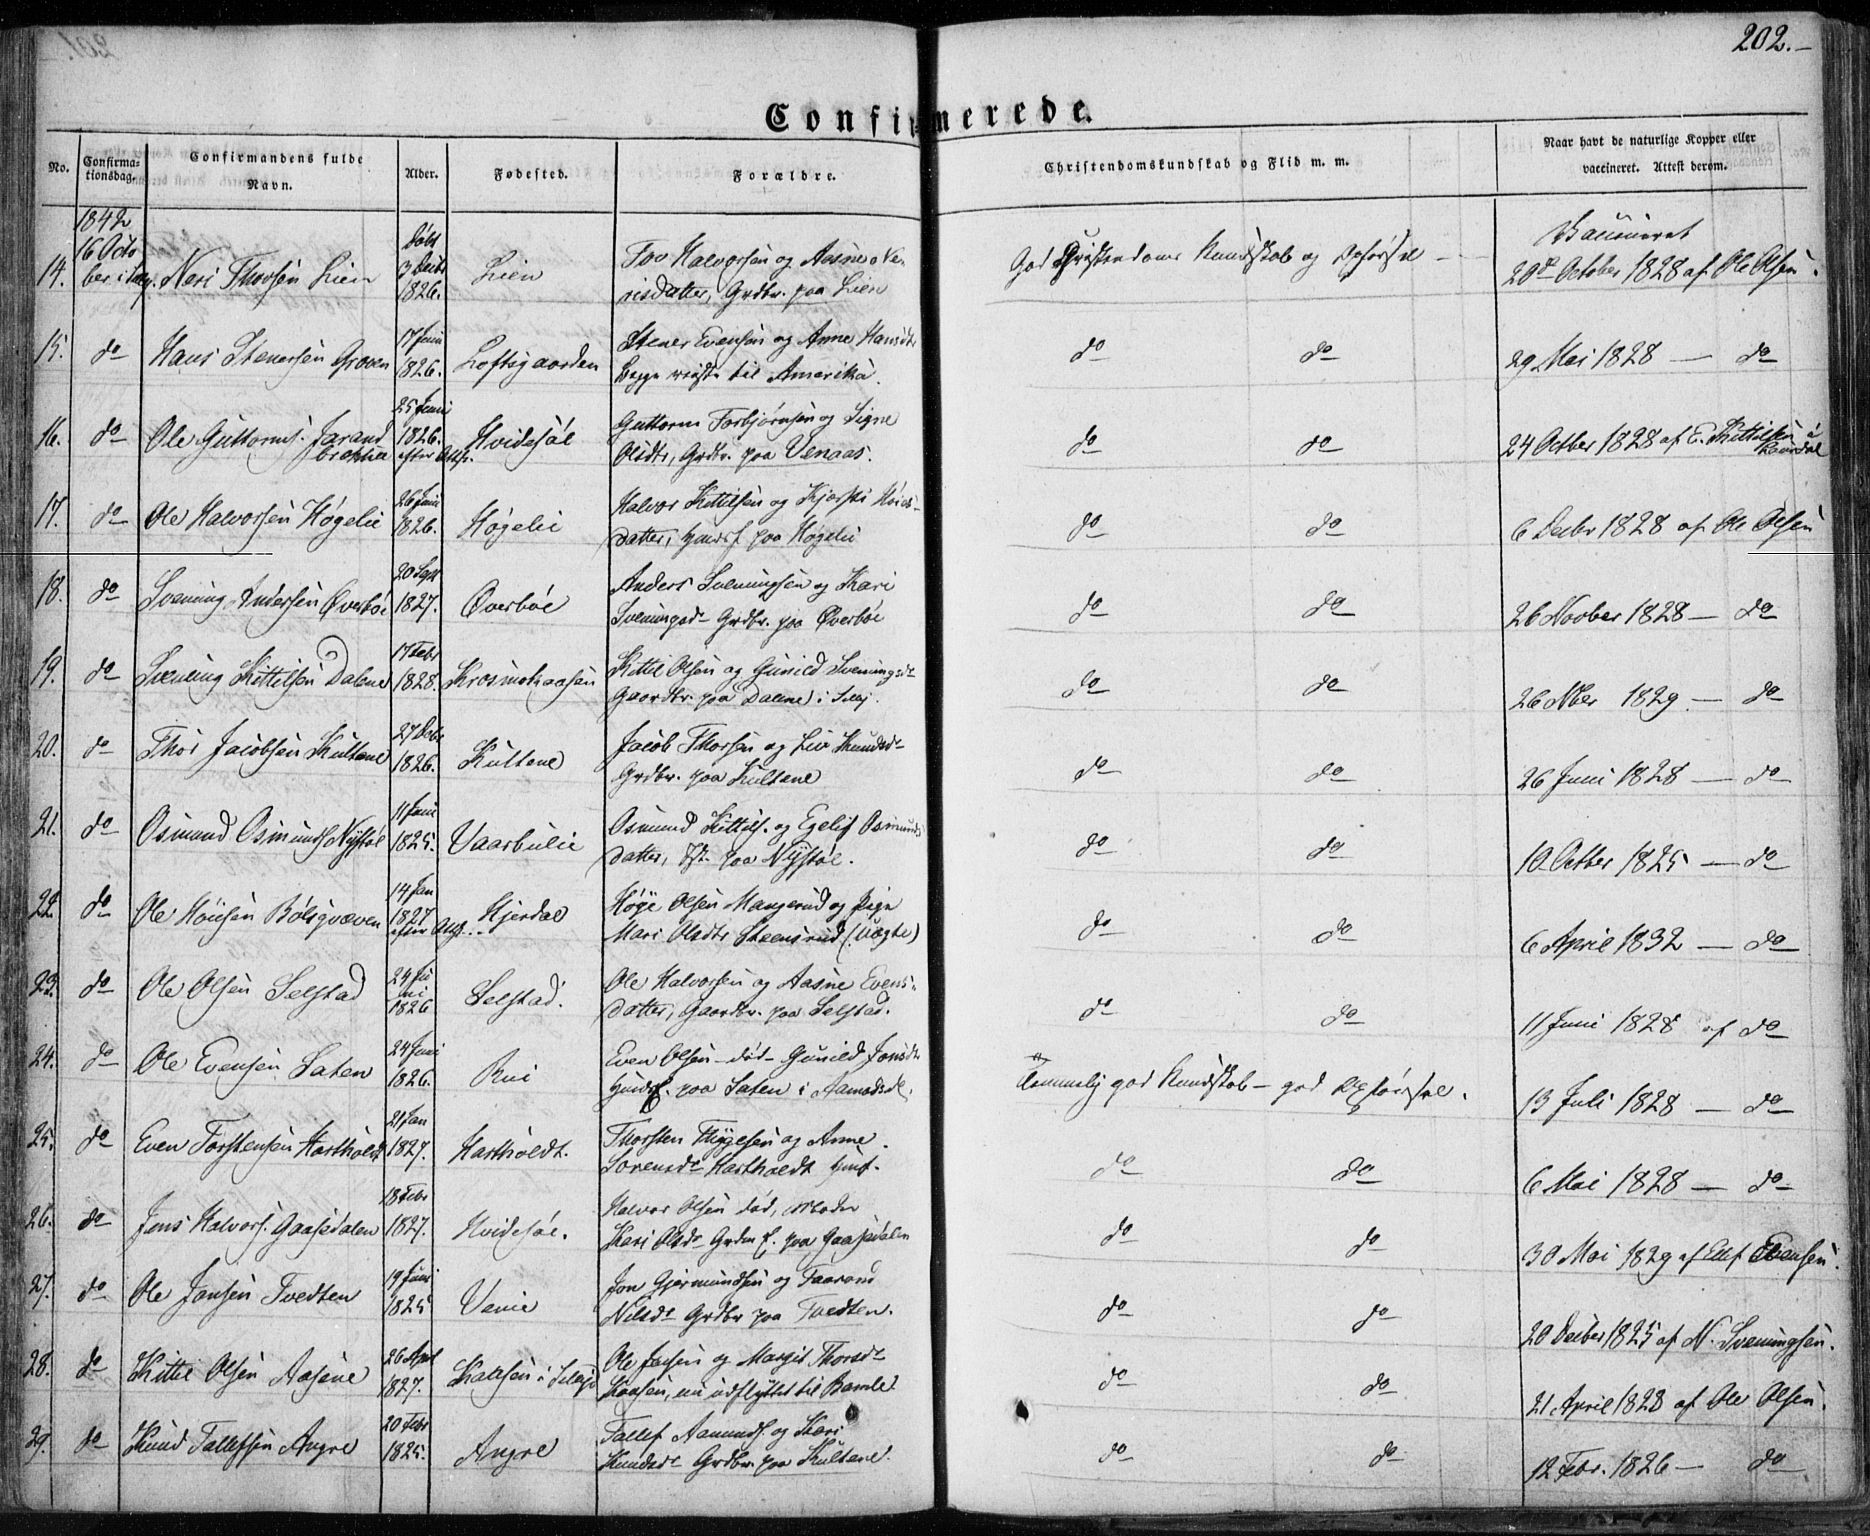 202.
Confirmerede.
No. Confirmationsdag. Confirmandens fulde Navn. Alder. Fødested. Forældre. Christendomskundskab og Flid m. m. Naar havt de naturlige Kopper eller vaccineret. Attest derom.
1842 døbt Vaccineret
14. 16 October i Neri Thovsen Lien 3 Decbr 1826. Lien Tov Halvorsen og Aasne Nerisdatter, Grdbr. paa Lien God Christendoms Kundskab og Opførsel 20de October 1828 af Ole Olsen.
15. do Hans Stenersen Groven 17 Juni 1826. Loftsgaarden Stener Evensen og Anne Hansdtr begge reiste til Amerika. do do 29 Mai 1828 — do
16. do Ole Guttorms. Jarandbrekka 25 Juni 1826. efter Att. Hvidesøe Guttorm Torbjørnsen og Signe Olsdtr, Grdbr. paa Venaas. do do 24 October 1828 af E. Kittilsen
17. do Ole Halvorsen Høgelie 26 Juni 1826. Høgelie Halvor Kittilsen og Kjersti datter, Huusf. paa Høgelie do do 6 Decbr 1828 af Ole Olsen
18. do Svening Andersen Øverbøe 20 Sept 1827. Øverbøe Anders Sveningsen og Kari Sveningsd- Grdbr. paa Øverbøe do do 26 Novber 1828 — do
19. do Svening Kittilsen Dalene 17 Febr 1828. Kittil Olsen og Gunild Sveningsd- Gaardbr. paa Dalene i do do 26 Nber 1829 — do
20. do Thor Jacobsen Kultane 27 Decbr 1826. Kultane Jacob Thorsen og Liv Knudsd- Grdbr. paa Kultane do do 26 Juni 1828 — do
21. do Osmund Osmunds. Nystøl 11 Juni 1825. Vaarbulie Osmund Kittils. og Egelif Osmundsdatter, paa Nystøl. do do 10 October 1825 — do
22. do Ole Høiesen 14 Jan 1827 efter Att. Hjerdal Høye Olsen Mangerud og Pige Mari Olsdtr Steensrud (uægte) do do 6 April 1832 — do
23. do Ole Olsen Selstad 24 Juni 1826 Selstad. Ole Halvorsen og Aasne Evensdatter, Gaardbr. paa Selstad. do do 11 Juni 1828 af do
24. do Ole Evensen Saten 24 Juni 1826. Rui Even Olsen - død - Gunild Jonsdtr Huusf. paa Saten i Aamodsd. Temmelig god Kundskab - god Opførsel. 13 Juli 1828 — do
25. do Even Torstensen Hartholdt 21 Jan 1827. Hartholdt. Thorsten Thygesen og Anne Sorensd- Hartholdt Huusf. do do 6 Mai 1828 — do
26. do Jens Halvors. Gaasedalen 18 Febr 1827. Hvidesøe. Halvor Olsen død, Moder Kari Olsd- paa Gaasedalen do do 30 Mai 1829 af Ellef Evensen.
27. do Ole Jonsen Tvedten 19 Juni 1825 Venie Jon Gjermundsen og Taarand Nilsd- Grdbr paa Tvedten. do do 20 Decber 1825 af N. Sveningsen.
28. do Kittil Olsen Aasene 26 April 1827. i Ole Jonsen og Margit Thorsd- nu udflyttet til Bamle do do 21 April 1828 af Ole Olsen.
29. do Knud Tallefsen Angre 20 Febr 1825. Angre Tallef Aamunds. og Kari Knudsd- Grdbr. paa Kultane. do do 12 Febr. 1826 — do